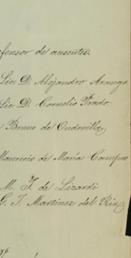 fensor de ausentes
Lic. D. Alejandro Arango
Lic. D. Cornelio Prado
Bruno de Ondovilla
Mauricio de María Campos
M. J. de Lizardi
G. J. Martinez del Rio